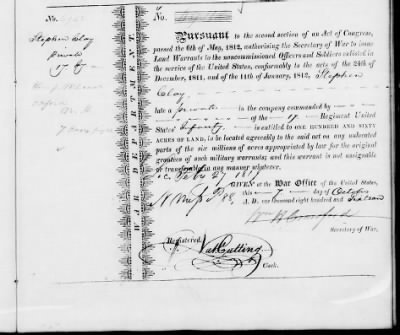 No.
Stephen Clay
Private
17 Regt
No.
WAR DEPARTMENT
Pursuant to the second section of an Act of Congress,
passed the 6th of May, 1812, authorising the Secretary of War to issue
Land Warrants to the noncommissioned Officers and Soldiers enlisted in
the service of the United States, conformably to the acts of the 24th of
December, 1811, and of the 11th of January, 1812, Stephen
Clay
late a private in the company commanded by
of the 17 Regiment United
States' Infantry is entitled to ONE HUNDRED AND SIXTY
ACRES OF LAND, to be located agreeably to the said act on any unlocated
parts of the six millions of acres appropriated by law for the original
grantees of such military warrants; and this warrant is not assignable
or transferable in any manner whatever.
Feby 27 1817
GIVEN at the War Office of the United States,
this 7 day of October
A. D. one thousand eight hundred and Sixteen
Wm H Crawford
Secretary of War.
Registered,
Nat Cutting
Clerk.